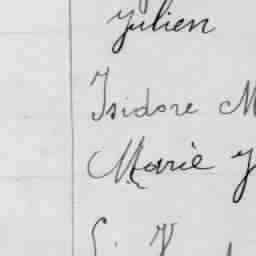 Julien
Isidore M
Marie y